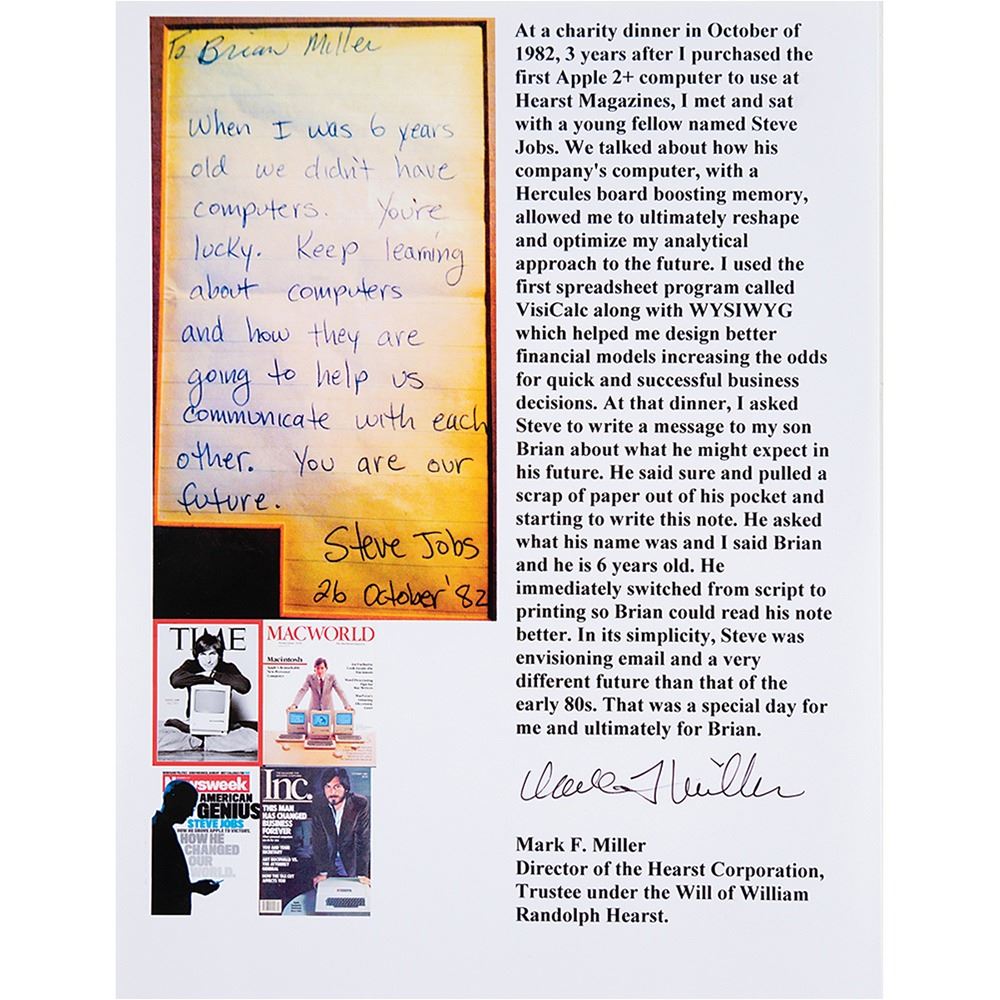 To Brian Miller
When I was 6 years
old we didn't have
computers. You're
lucky. Keep learning
about computers
and how they are
going to help us
communicate with each
other. You are our
future.
Steve Jobs
26 October '82
TIME
MACWORLD
Macintosh
Newsweek
AMERICAN
GENIUS
STEVE JOBS
HOW HE DROVE APPLE TO VICTORY.
HOW HE
CHANGED
OUR
WORLD.
Inc.
THIS MAN
HAS CHANGED
BUSINESS
FOREVER
At a charity dinner in October of
1982, 3 years after I purchased the
first Apple 2+ computer to use at
Hearst Magazines, I met and sat
with a young fellow named Steve
Jobs. We talked about how his
company's computer, with a
Hercules board boosting memory,
allowed me to ultimately reshape
and optimize my analytical
approach to the future. I used the
first spreadsheet program called
VisiCalc along with WYSIWYG
which helped me design better
financial models increasing the odds
for quick and successful business
decisions. At that dinner, I asked
Steve to write a message to my son
Brian about what he might expect in
his future. He said sure and pulled a
scrap of paper out of his pocket and
starting to write this note. He asked
what his name was and I said Brian
and he is 6 years old. He
immediately switched from script to
printing so Brian could read his note
better. In its simplicity, Steve was
envisioning email and a very
different future than that of the
early 80s. That was a special day for
me and ultimately for Brian.
Mark F Miller
Mark F. Miller
Director of the Hearst Corporation,
Trustee under the Will of William
Randolph Hearst.